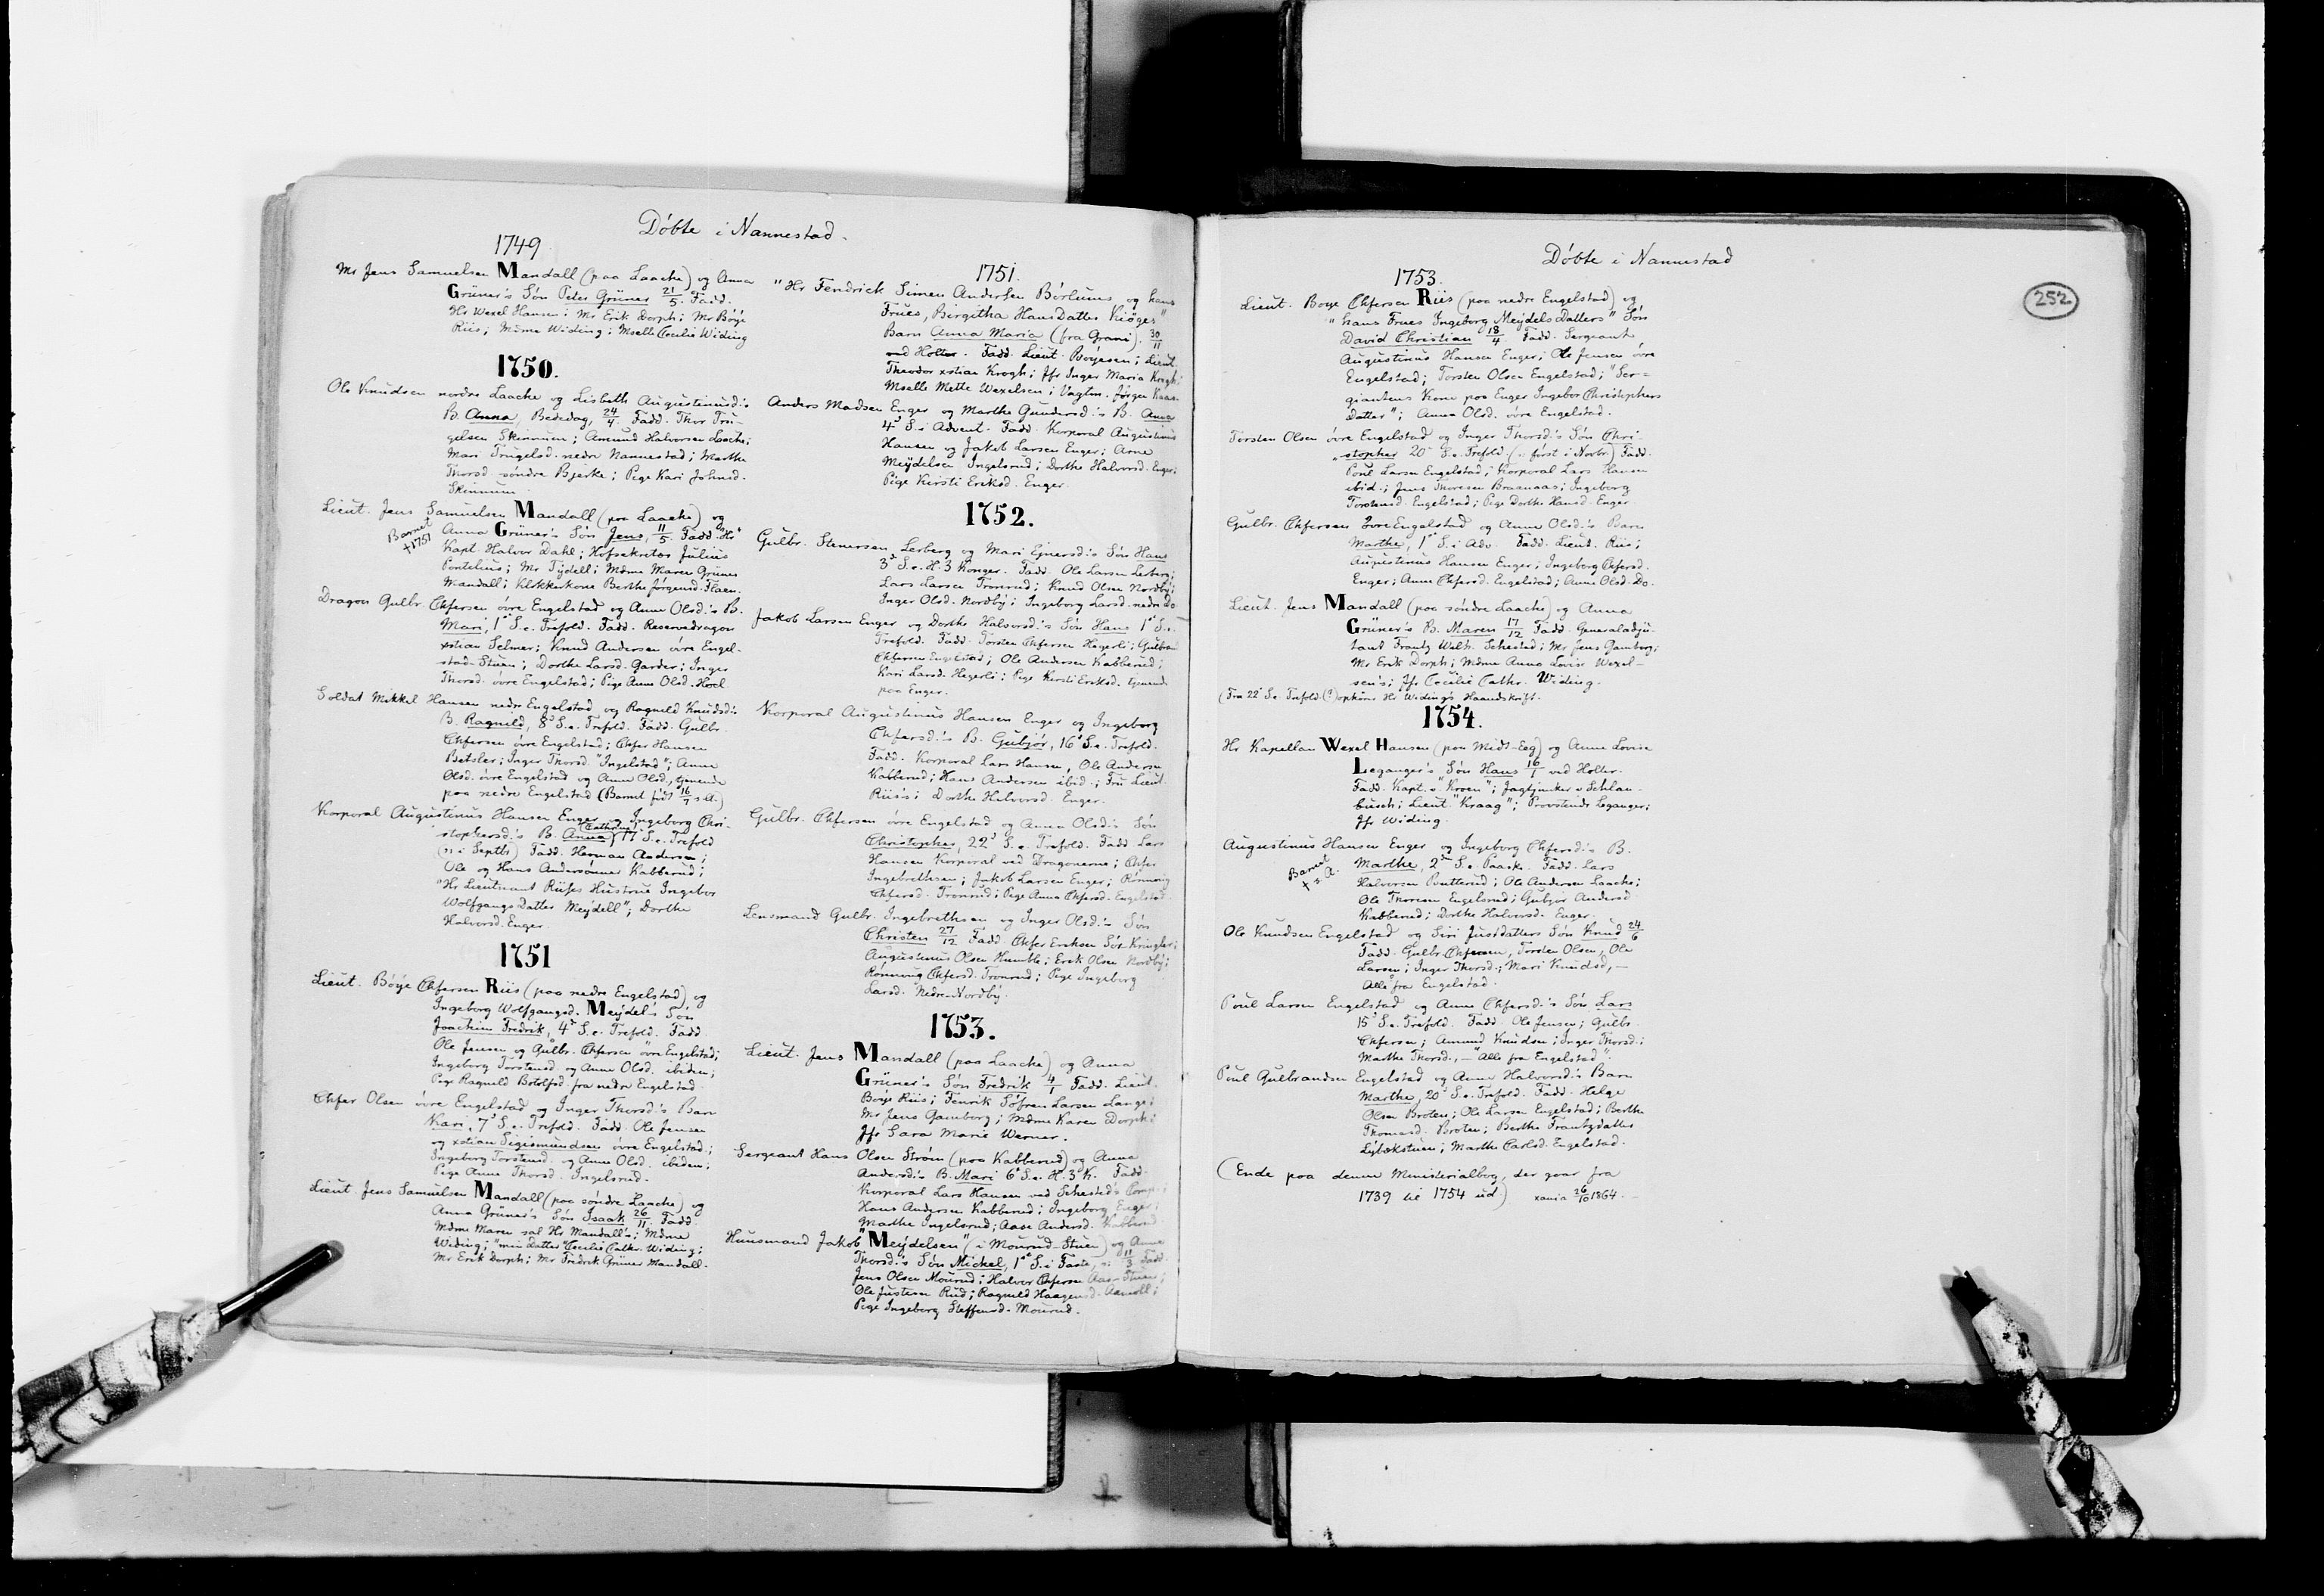 Döbte i Nannestad.
1749
Mr Jens Samuelsen Mandall (paa Laache) og Anna
Grüner's Sön Peter Grüner 21/5. Fadd.
Hr Wexel Hansen; Mr Erik Dorph; Mr Böye
Riis; Mdme Widing; Mselle Cecilie Widing
1750.
Ole Knudsen nordre Laache og Lisbeth Augustinusd:s
B. Anna, Bededag, 24/4. Fadd. Thor Tru-
gelsen Skinnuen; Amund Halvorsen Laache;
Mari Trugelsd. nedre Nannestad; Marthe
Thorsd söndre Bjerke; Pige Kari Johnsd.
Skinnuen
Lieut. Jens Samuelsen Mandall (paa Laache) og
Barnet
+1751
Anna Grüner's Sön Jens, 11/5. Fadd. "Hr"
Kapt. Halvor Dahl; Hofsekretær Julius
Pontelius; Mr Tÿdell; Mdme Maren Grüner
Mandall; Klokkerkone Berthe Jörgensd. Flaen.
Dragon Gulbr. Chfersen övre Engelstad og Anne Olsd:s B.
Mari, 1ˢ S.e. Trefold. Fadd. Reservedragon
xstian Selmer; Knud Andersen övre Engel-
stad-Stuen; Dorthe Larsd. Garder; Inger
Thorsd. övre Engelstad; Pige Anne Olsd. Hoel
Soldat Mikkel Hansen nedre Engelstad og Ragnild Knudsd:s
B. Ragnild, 8ˢ S.e. Trefold. Fadd. Gulbr.
Chfersen övre Engelstad; Chfer Hansen
Betsler; Inger Thorsd. "Ingelstad"; Anne
Olsd. övre Engelstad og Anne Olsd., tjenende
paa nedre Engelstad (Barnet födt 16/7 s.A.)
Korporal Augustinus Hansen Enger og Ingeborg Chri-
stophersd:s B. Anna Cathrine, 17ˢ S.e. Trefold
(i Septbr) Fadd. Herman Andersen;
Ole og Hans Andersønner Kabberud;
"Hr Lieutnant Riises Hustrue Ingebor
Wolfgangs Datter Meÿdell"; Dorthe
Halvorsd. Enger.
1751
Lieut. Böÿe Chfersen Riis (paa nedre Engelstad) og
Ingeborg Wolfgangsd. Meÿdel's Sön
Joachim Fredrik, 4ˢ S.e. Trefold. Fadd.
Ole Jensen og Gulbr. Chfersen övre Engelstad;
Ingeborg Torstensd. og Anne Olsd. ibidem;
Pige Ragnild Botolfsd. fra nedre Engelstad.
Chfer Olsen övre Engelstad og Inger Thorsd:s Barn
Kari, 7ˢ S.e. Trefold. Fadd. Ole Jensen
og xstian Sigismundsen övre Engelstad;
Ingeborg Torstensd. og Anne Olsd. ibidem;
Pige Anne Thorsd. Ingelsrud.
Lieut. Jens Samuelsen Mandall (paa söndre Laache) og
Anna Grüner's Sön Isaak 26/11. Fadd.
Mdme Maren sal. Hr Mandall's; Mdme
Widing; "min Datter" Cecilie Cathr. Widing;
Mr Erik Dorph; Mr Fredrik Grüner Mandall.
1751.
"Hr Fendrick Simen Andersen Börlums og hans
Frues, Birgitha HansDatter Kiöges"
Barn Anna Maria (fra Grani). 30/11
ved Holter. Fadd. Lieut. Borjesen; Lieut.
Theodor xstian Krogh; Jfr Inger Maria Krogh;
Mselle Mette Wexelsen; Vagtm. Jörgen
Anders Madsen Enger og Marthe Gundersd:s B. Anna
4ˢ S. i Advent. Fadd. Korporal Augustinus
Hansen og Jakob Larsen Enger; Arne
Meÿdelsen Ingelsrud; Dorthe Halvorsd. Enger;
Pige Kirsti Eriksd. Enger.
1752.
Gulbr. Stenersen Lerberg og Mari Ejnersd:s Sön Hans
3ˢ S.e. H. 3 Konger. Fadd. Ole Larsen Lerberg;
Lars Larsen Tronrud; Knud Olsen Nordbÿ;
Inger Olsd. Nordbÿ; Ingeborg Larsd. nedre Do
Jakob Larsen Enger og Dorthe Halvorsd:s Sön Hans 1ˢ S.e.
Trefold. Fadd. Torsten Chfersen Hegerli; Gulbran
Chfersen Engelstad; Ole Andersen Kabberud;
Kari Larsd. Hegerli; Pige Kirsti Eriksd. tjenende
paa Enger.
Korporal Augustinus Hansen Enger og Ingeborg
Chfersd:s B. Gubjör, 16ˢ S.e. Trefold.
Fadd. Korporal Lars Hansen, Ole Andersen
Kabberud; Hans Andersen ibid.; Fru Lieut.
Riis's; Dorthe Halvorsd. Enger.
Gulbr. Chfersen övre Engelstad og Anna Olsd:s Sön
Christopher, 22ˢ S.e. Trefold. Fadd Lars
Hansen Korporal ved Dragonerne; Chfer
Ingebrethsen; Jakob Larsen Enger; Rönnaug
Chfersd. Tronrud; Pige Anna Chfersd. Engelstad
Lensmand Gulbr. Ingebrethsen og Inger Olsd:s Sön
Christen 27/12 Fadd. Chfer Eriksen Sör-Kringler;
Augustinus Olsen Humble; Erik Olsen Nordbÿ;
Rönnaug Chfersd. Tronrud; Pige Ingeborg
Larsd. Nedre-Nordbÿ.
1753.
Lieut. Jens Mandall (paa Laache) og Anna
Grüner's Sön Fredrik 4/1 Fadd. Lieut.
Borje Riis; Fenrik Söfren Larsen Lange;
Mr Jens Gamborg; Mdme Karen Dorph;
Jfr Sara Marie Werner.
Sergeant Hans Olsen Ström (paa Kabberud) og Anna
Andersd:s B. Mari 6ˢ S.e. H. 3 K. Fadd.
Korporal Lars Hansen ved Schested's Comp.;
Hans Andersen Kabberud; Ingeborg Enger;
Marthe Ingelsrud; Aase Andersd. Kabberud.
Huusmand Jakob "Meÿdelsen" (i Mourud-Stuen) og Anne
Thorsd:s Sön Mickel, 1ˢᵗ S. i Faste, 11/3 Fadd.
Jens Olsen Mourud; Halvor Chfersen Aas-Stuen;
Ole Justsen Rud; Ragnild Haagensd. Aamoll;
Pige Ingeborg Steffensd. Mourud.
Döbte i Nannestad
252
1753.
Lieut. Borje Chfersen Riis (paa nedre Engelstad) og
"hans Frues Ingeborg Meÿdels Datters" Sön
David Christian 18/4 Fadd. Sergeant
Augustinus Hansen Enger; Ole Jensen övre
Engelstad; Torsten Olsen Engelstad; "Ser=
giantens Kone paa Enger Ingebor Christophers
Datter"; Anna Olsd. övre Engelstad.
Torsten Olsen övre Engelstad og Inger Thorsd:s Sön Chri-
stopher 20ˢ S.e. Trefold. (: först i Novbr) Fadd.
Poul Larsen Engelstad; Korporal Lars Hansen
ibid.; Jens Thoresen Braanaas; Ingeborg
Torstensd. Engelstad; Pige Dorthe Hansd. Enger
Gulbr. Chfersen Övre Engelstad og Anne Olsd:s Barn
Marthe, 1ˢᵗ S. i Adv. Fadd. Lieut. Riis;
Augustinus Hansen Enger; Ingeborg Chfersd.
Enger; Anne Chfersd. Engelstad; Anne Olsd. Do.
Lieut. Jens Mandall (paa söndre Laache) og Anna
Grüner's B. Maren 17/12 Fadd. Generaladju-
tant Frantz Wilh. Schested; Mr Jens Gamborg;
Mr Erik Dorph; Mdme Anna Lovise Wexel-
sen's; Jfr Cecilie Cathr. Widing.
(Fra 22ˢ S.e. Trefold.(?) ophörer Hr Widing's Haandskrift.
1754.
Hr Kapellan Wexel Hansen (paa Midt-Eeg) og Anne Lovise
Leganger's Sön Hans 16/1 ved Holter.
Fadd. Kapt. v. "Kroen"; Jagtjunker v Schlan-
busch; Lieut. "Kraag"; Provstinde Leganger;
Jfr Widing.
Augustinus Hansen Enger og Ingeborg Chfersd:s B.
Barnet
+ s. A.
Marthe, 2ᵈᵉⁿ S.e. Paaske. Fadd. Lars
Halvorsen Putterud; Ole Andersen Laache;
Ole Thoresen Engelsrud; Gubjor Andersd
Kabberud; Dorthe Halvorsd. Enger.
Ole Knudsen Engelstad og Siri Justdatters Sön Knud 24/6
Fadd. Gulbr Chfersen, Torsten Olsen, Ole
Larsen; Inger Thorsd.; Mari Knudsd, —
Alle fra Engelstad.
Poul Larsen Engelstad og Anne Chfersd:s Sön Lars
15ˢ S.e. Trefold. Fadd. Ole Jensen; Gulbr.
Chfersen; Amund Knudsen; Inger Thorsd.;
Marthe Thorsd., — "Alle fra Engelstad".
Poul Gulbrandsen Engelstad og Anne Halvorsd:s Barn
Marthe, 20ˢ S.e. Trefold. Fadd. Helge
Olsen Broten; Ole Larsen Engelstad; Berthe
Thomasd. Broten; Berthe Frantzdatter
Lÿbekstuen; Marthe Carlsd. Engelstad.
(Ende paa denne Ministerialbog, der gaar fra
1739 til 1754 ud.) xania 26/10 1864.